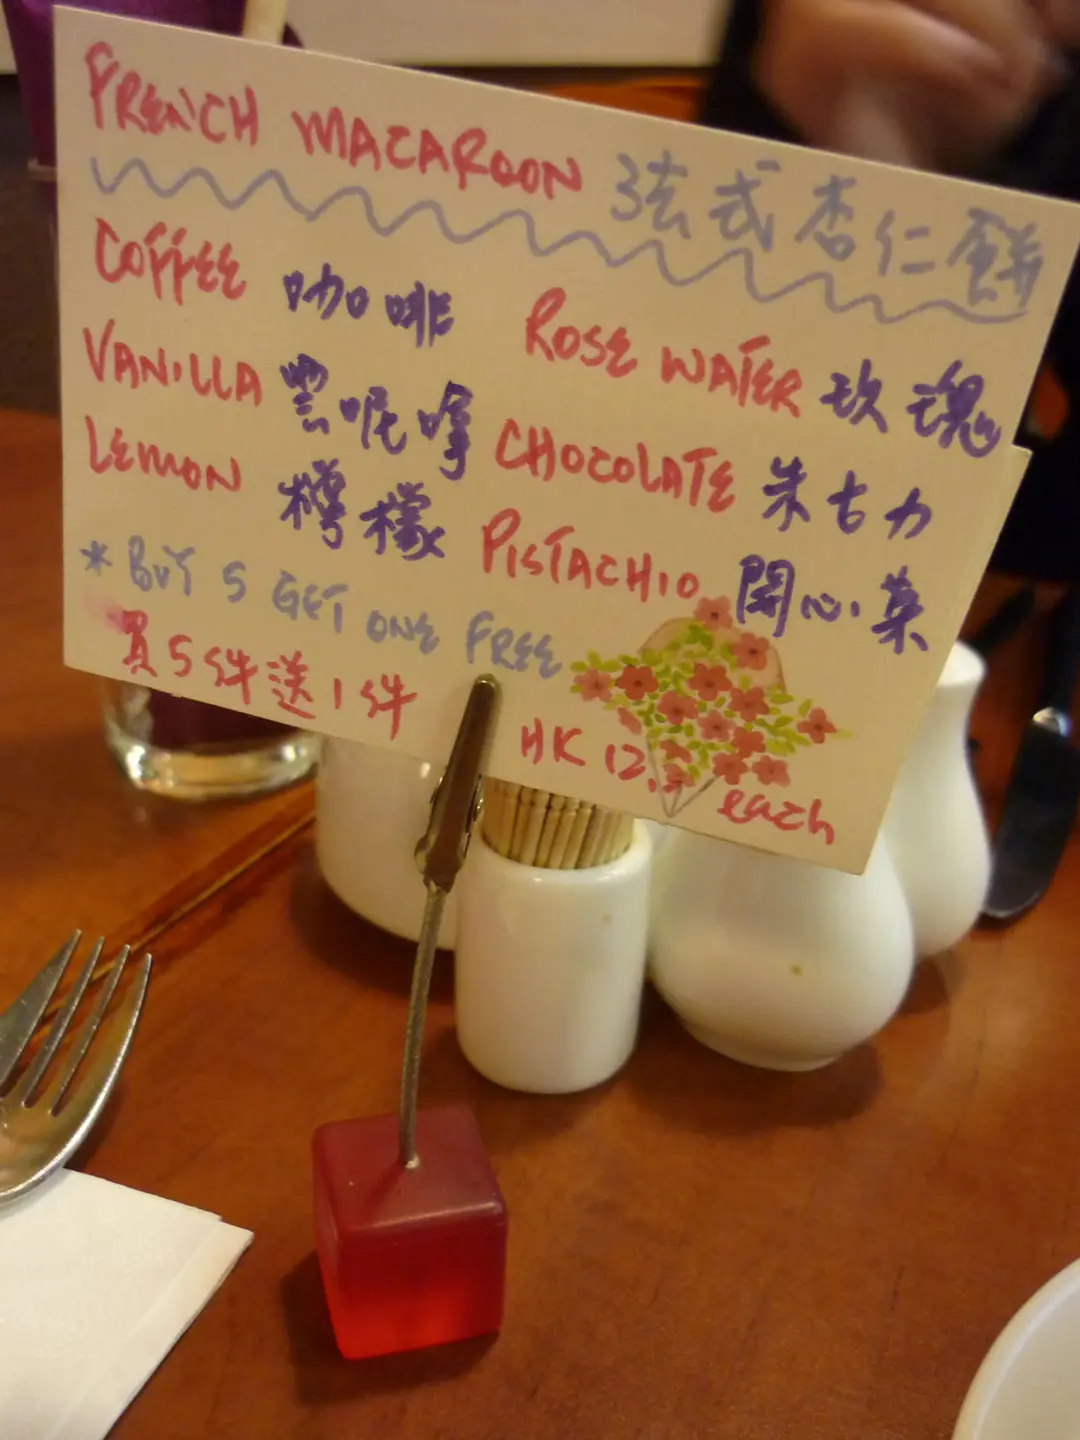 FRENCH MACAROON 法式杏仁餅
COFFEE 咖啡
ROSE WATER 玫瑰
VANILLA 雲呢拿
CHOCOLATE 朱古力
LEMON 檸檬
PISTACHIO 開心菓
* BUY 5 GET ONE FREE
買5件送1件
HK 12.5 each